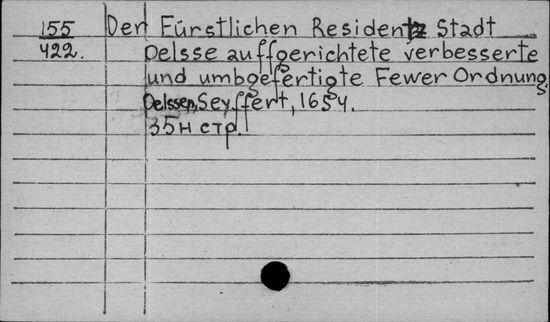 155 Der Fürstlichen Residentz Stadt
422. Oelsse auffgerichtete verbesserte
und umbgefertigte Fewer Ordnung.
Oelssen, Seyffert, 1654.
35н стр.